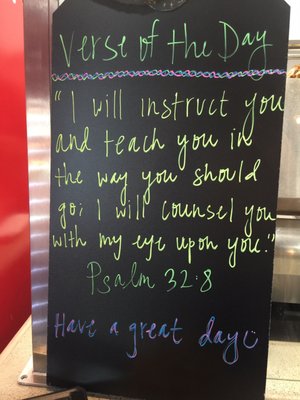 Verse of the Day
"I will instruct you
and teach you in
the way you should
go; I will counsel you
with my eye upon you."
Psalm 32:8
Have a great day